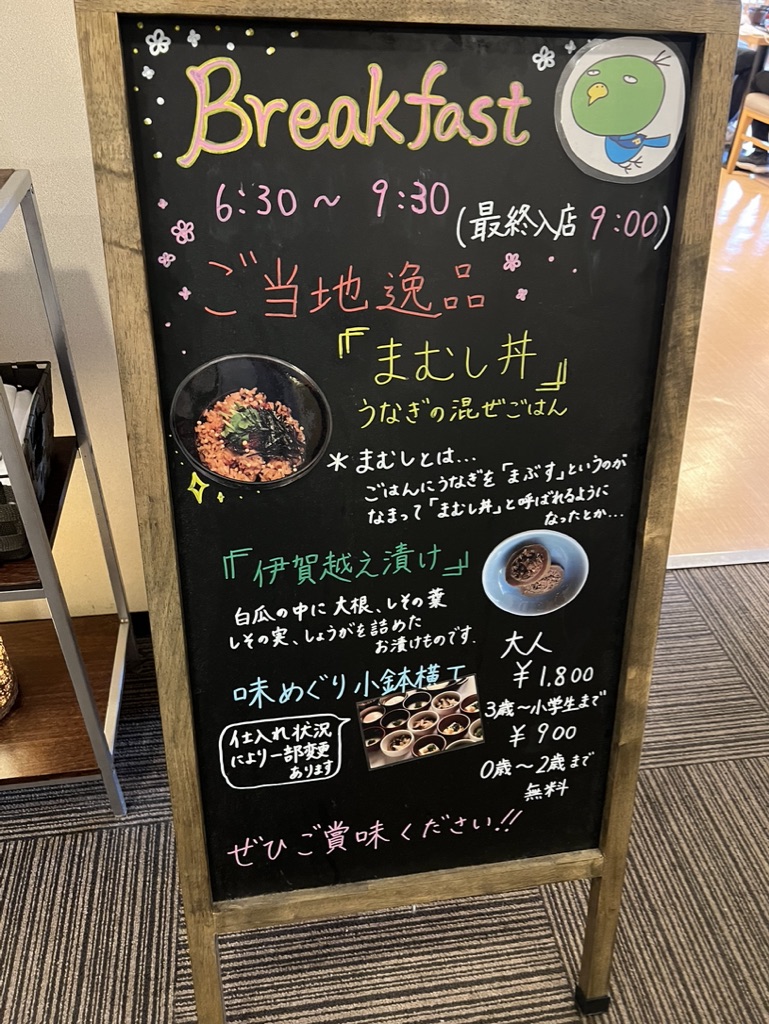 Breakfast
6:30～9:30
(最終入店 9:00)
ご当地逸品
『まむし丼』
うなぎの混ぜごはん
＊まむしとは…
ごはんにうなぎを「まぶす」というのが
なまって「まむし丼」と呼ばれるように
なったとか…
『伊賀越え漬け』
白瓜の中に大根、しその葉
しその実、しょうがを詰めた
お漬けものです.
味めぐり小鉢横丁
仕入れ状況
により一部変更
あります
大人
¥1.800
3歳～小学生まで
¥900
0歳～2歳まで
無料
ぜひご賞味ください!!